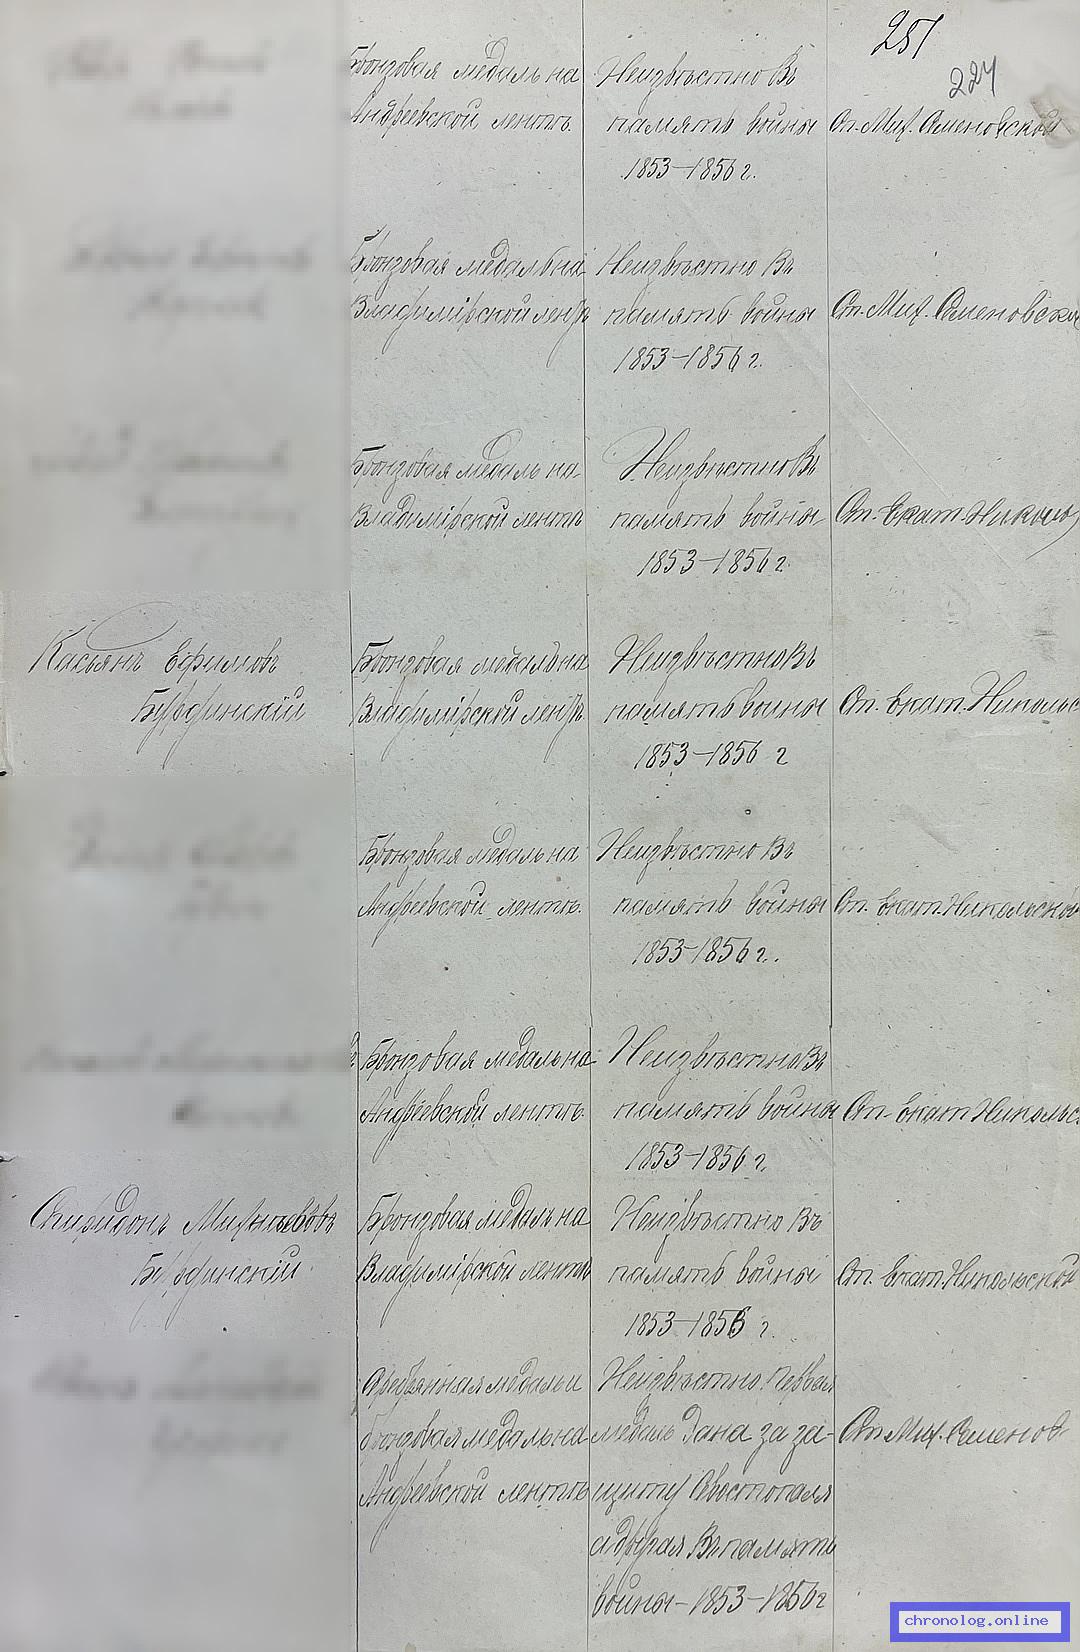 281
224
Бронзовая медаль на
Андреевской лентѣ.
Неизвѣстно Въ
память войны
1853–1856 г.
Ст. Мих. Семеновской
Бронзовая медаль на
Владимірской лентѣ
Неизвѣстно Въ
память войны
1853–1856 г.
Ст. Мих. Семеновской
Бронзовая медаль на
Владимірской лентѣ
Неизвѣстно Въ
память войны
1853–1856 г.
Ст. Екат. Николь
Касьянъ Ефимовъ
Бурдинскій
Бронзовая медаль на
Владимірской лентѣ
Неизвѣстно Въ
память войны
1853–1856 г
Ст. Екат. Никольс
Бронзовая медаль на
Андреевской лентѣ.
Неизвѣстно Въ
память войны
1853–1856 г.
Ст. Екат. Никольской
Бронзовая медаль на
Андреевской лентѣ.
Неизвѣстно Въ
память войны
1853–1856 г.
Ст. Екат. Никольс
Спиридонъ
Бурдинскій.
Бронзовая медаль на
Владимірской лентѣ
Неизвѣстно Въ
память войны
1853–1856 г.
Ст. Екат. Никольской
Серебянная медаль и
бронзовая медаль на
Андреевской лентѣ
Неизвѣстно. Первая
медаль дана за за-
щиту Севостополя
а другая Въ память
войны – 1853–1856 г
Ст. Мих. Семенов
chronolog.online